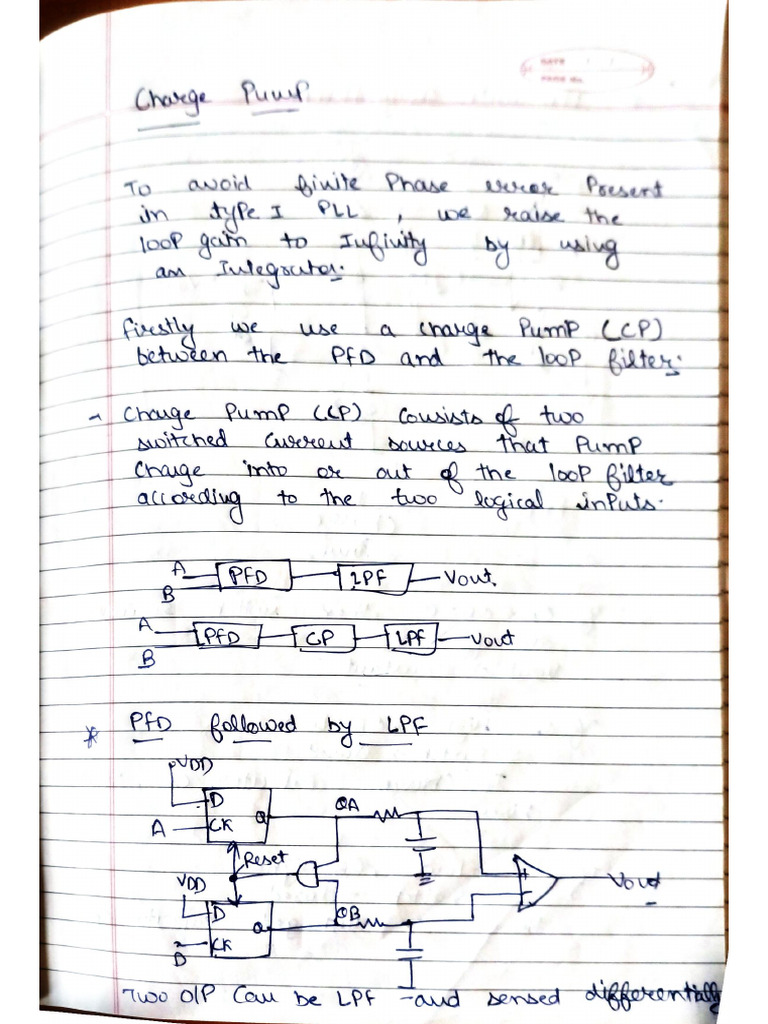 DATE
PAGE No.
Charge Pump
To avoid finite Phase error Present
in type I PLL , we raise the
loop gain to Infinity by using
an Integrator.
firstly we use a charge Pump (CP)
between the PFD and the loop filter.
Charge Pump (CP) consists of two
switched current sources that Pump
Charge into or out of the loop filter
according to the two logical inputs.
A
B
PFD
LPF
Vout
A
B
PFD
CP
LPF
Vout
* PFD followed by LPF
VDD
D
A
CK
Q
QA
Reset
VDD
D
Q
QB
CK
Vout
+
-
Two O/P Can be LPF and sensed differentially